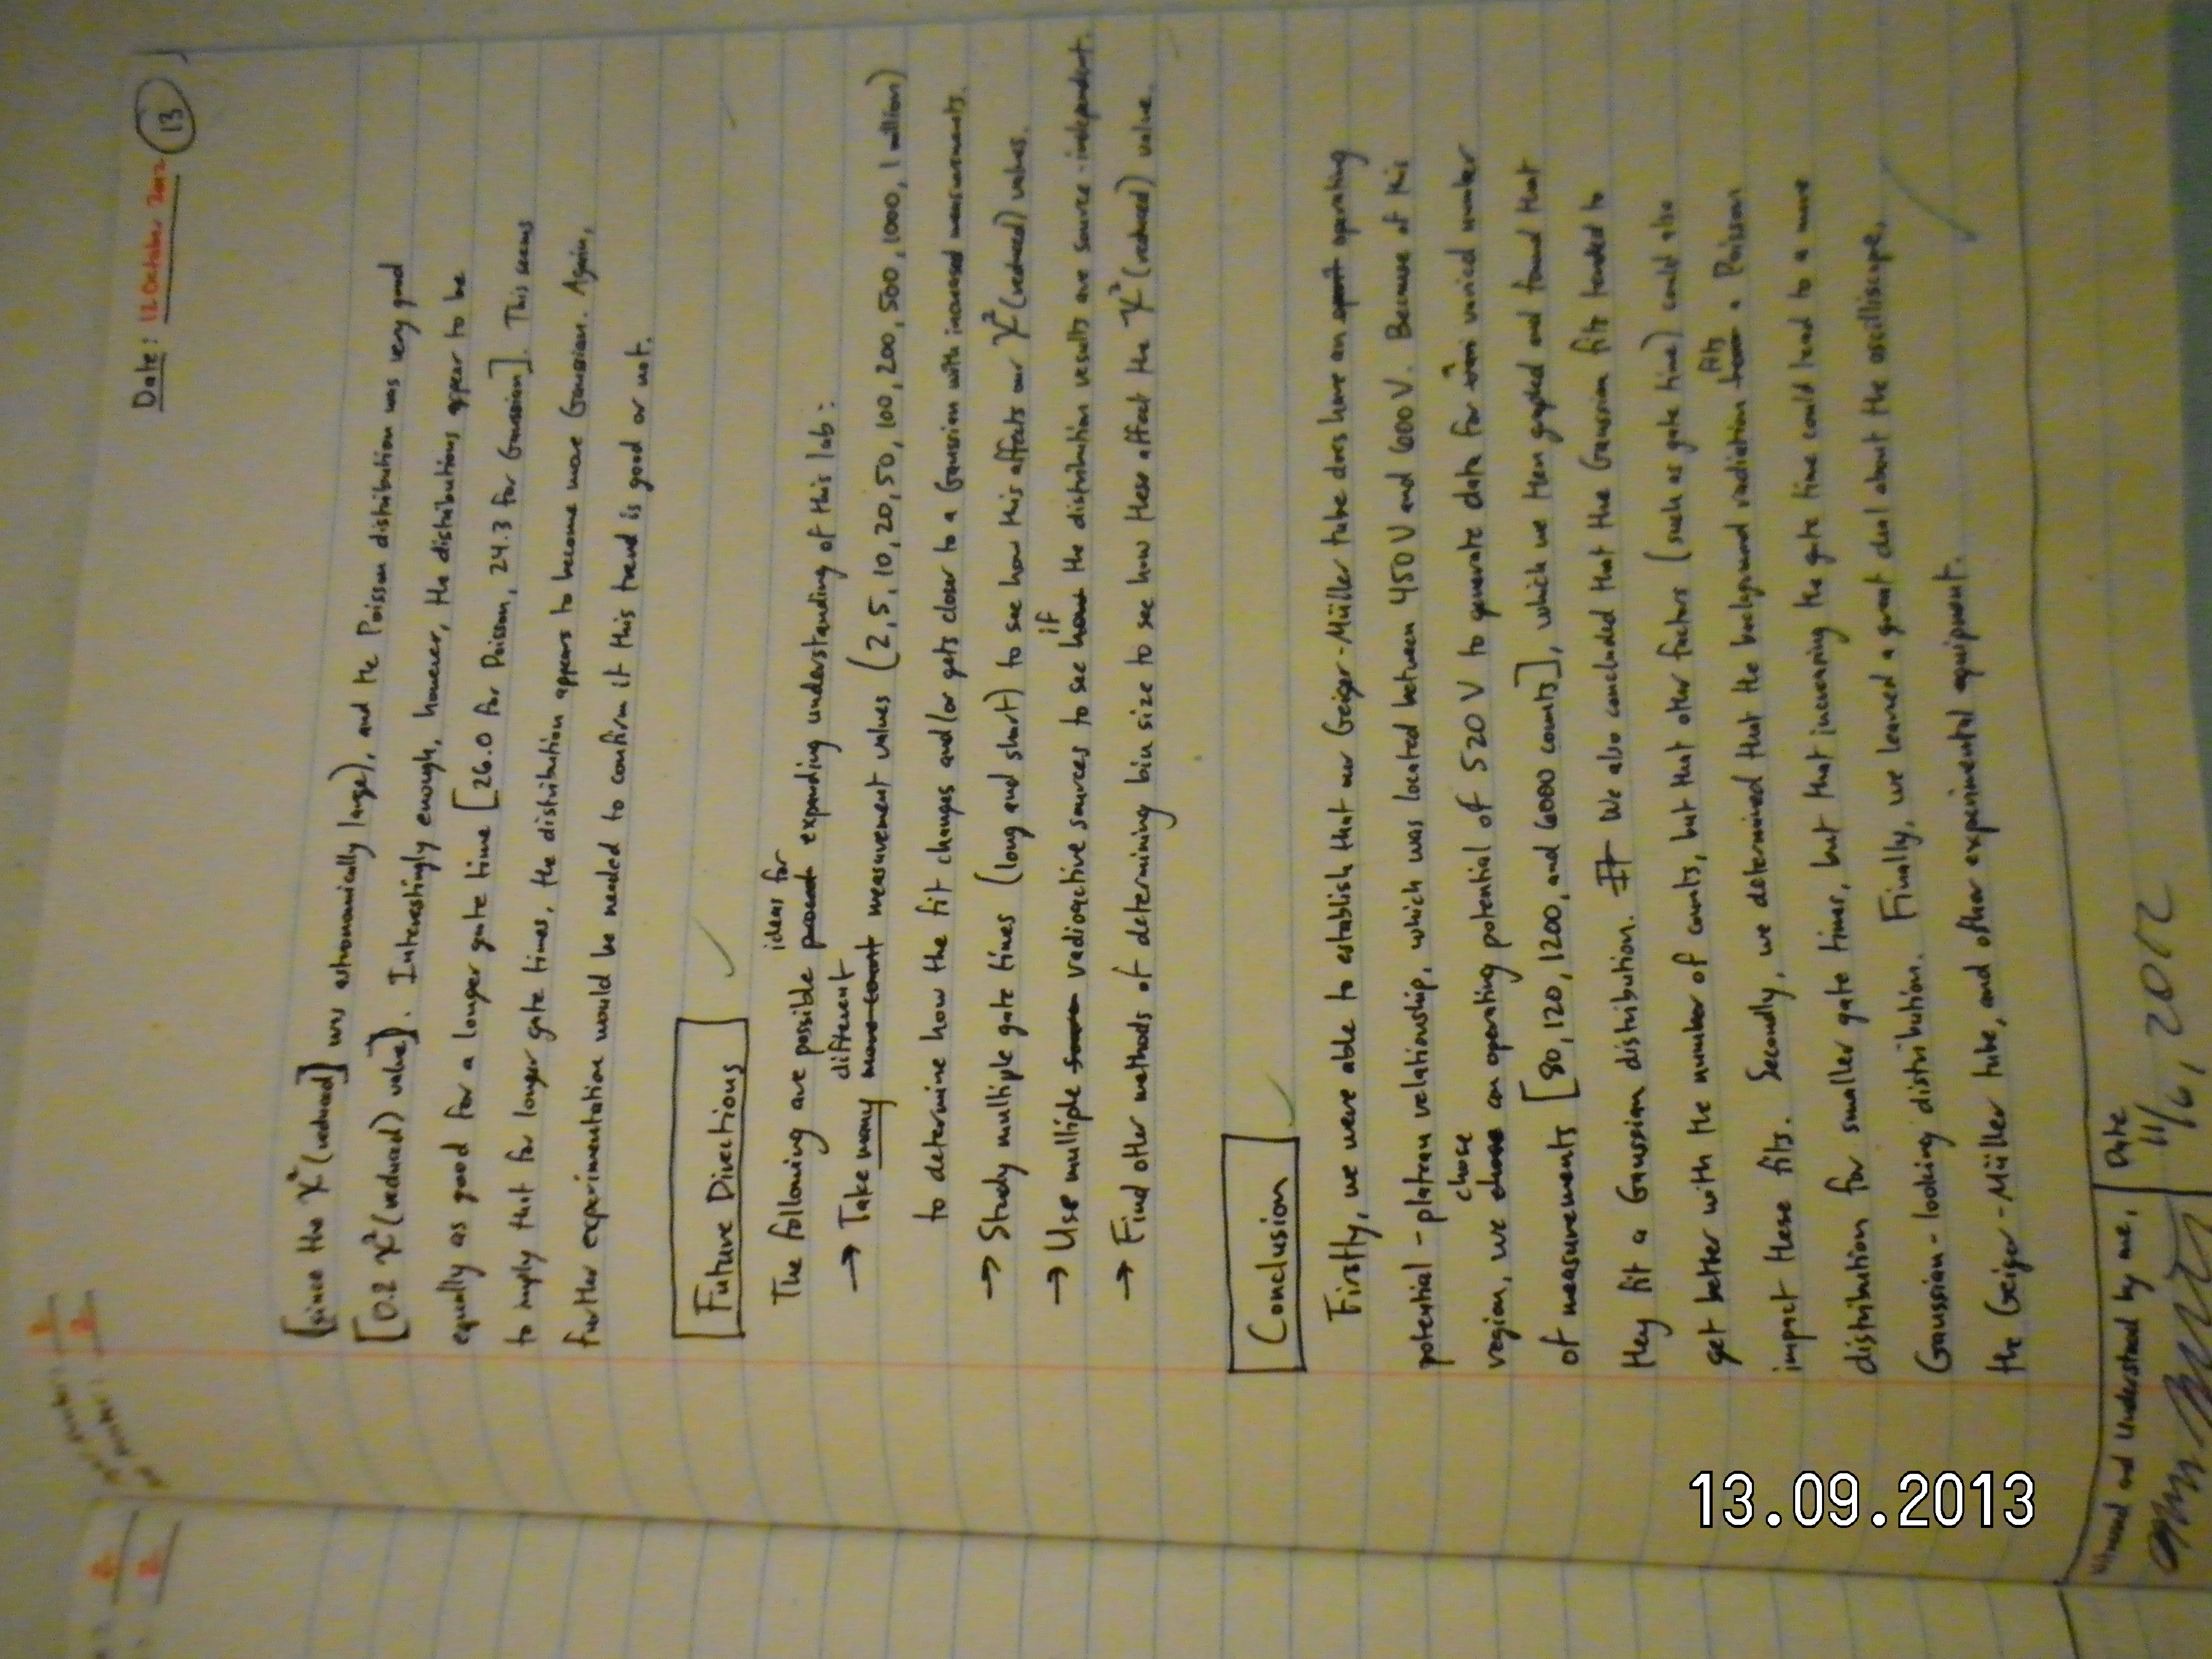 Date: 12 October 2012 13
[since the χ² (reduced)] was astronomically large), and the Poisson distribution was very good
[0.2 χ² (reduced) value]. Interestingly enough, however, the distributions appear to be
equally as good for a longer gate time [26.0 for Poisson, 24.3 for Gaussian]. This seems
to imply that for longer gate times, the distribution appears to become more Gaussian. Again,
further experimentation would be needed to confirm if this trend is good or not.
Future Directions
The following are possible ideas for expanding understanding of this lab:
→ Take many different measurement values (2, 5, 10, 20, 50, 100, 200, 500, 1000, 1 million)
to determine how the fit changes and/or gets closer to a Gaussian with increased measurements.
→ Study multiple gate times (long and short) to see how this affects our χ² (reduced) values.
→ Use multiple radioactive sources to see if the distribution results are source-independent.
→ Find other methods of determining bin size to see how these affect the χ² (reduced) value.
Conclusion
Firstly, we were able to establish that our Geiger-Müller tube does have an operating
potential-plateau relationship, which was located between 450 V and 600 V. Because of this
region, we chose an operating potential of 520 V to generate data for a varied number
of measurements [80, 120, 1200, and 6000 counts], which we then graphed and found that
they fit a Gaussian distribution. We also concluded that the Gaussian fits tended to
get better with the number of counts, but that other factors (such as gate time) could also
impact these fits. Secondly, we determined that the background radiation fits a Poisson
distribution for smaller gate times, but that increasing the gate time could lead to a more
Gaussian-looking distribution. Finally, we learned a great deal about the oscilliscope,
the Geiger-Müller tube, and other experimental equipment.
Witnessed and Understood by me, Date
11/6, 2012
13.09.2013